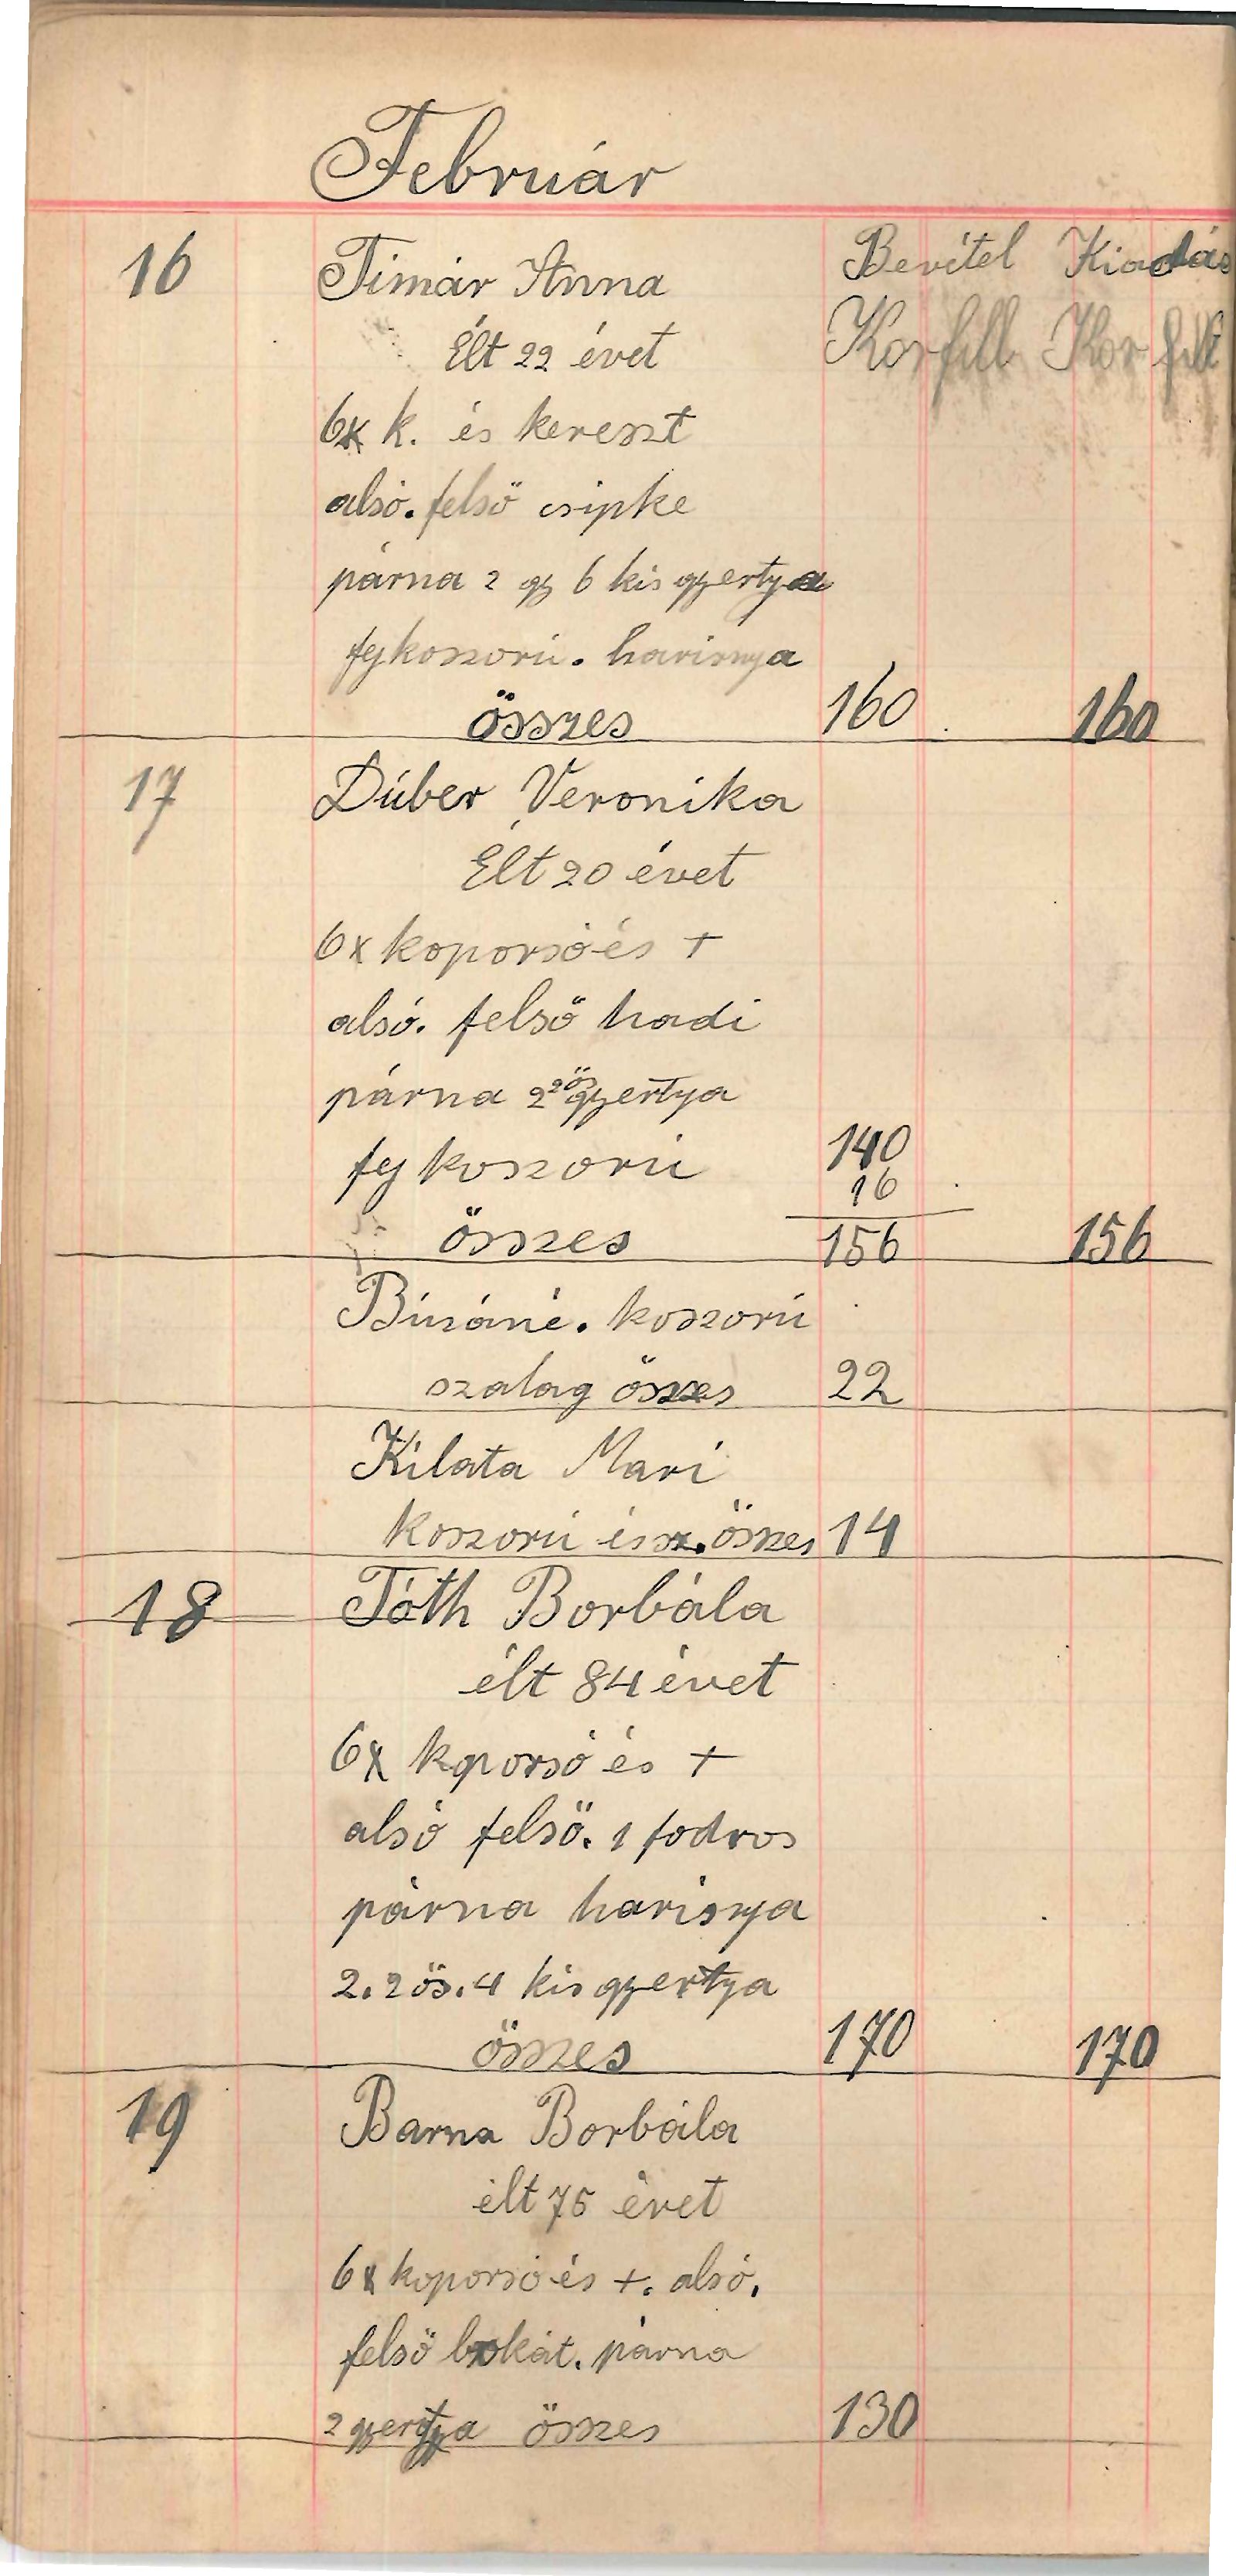 Február
16 Timár Anna Bevétel Kiadás
Élt 22 évet Kor fill Kor fill
6x k. és kereszt
alsó. felső csipke
párna 2 gy 6 kis gyertya
fejkoszorú. harisnya
összes 160 160
17 Dúber Veronika
Élt 20 évet
6x koporsó és +
alsó. felső hadi
párna 2 2ős gyertya
fej koszorú 140
16
összes 156 156
koszorú
szalag összes 22
Kilata Mari
koszorú és sz. összes 14
18 Tóth Borbála
élt 84 évet
6x koporsó és +
alsó felső. 1 fodros
párna harisnya
2. 2ös. 4 kis gyertya
összes 170 170
19 Barna Borbála
élt 75 évet
6x koporsó és +. alsó.
felső brokát. párna
2 gyertya összes 130